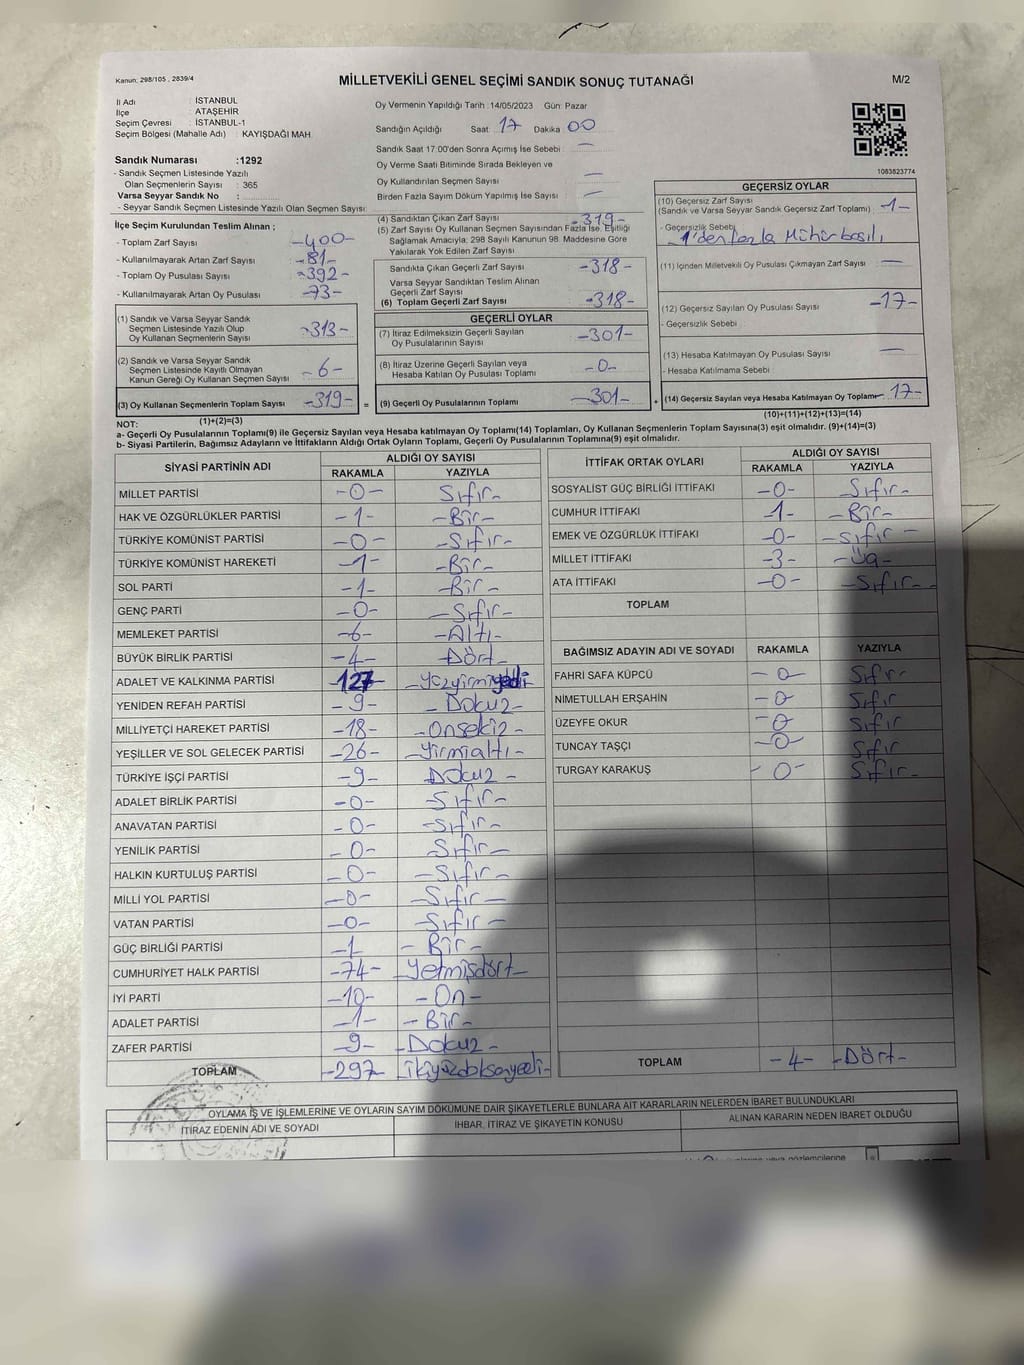 Kanun: 298/105 , 2839/4
MİLLETVEKİLİ GENEL SEÇİMİ SANDIK SONUÇ TUTANAĞI
M/2
İl Adı : İSTANBUL
İlçe : ATAŞEHİR
Seçim Çevresi : İSTANBUL-1
Seçim Bölgesi (Mahalle Adı) : KAYIŞDAĞI MAH
Sandık Numarası :1292
- Sandık Seçmen Listesinde Yazılı
Olan Seçmenlerin Sayısı : 365
Varsa Seyyar Sandık No :
- Seyyar Sandık Seçmen Listesinde Yazılı Olan Seçmen Sayısı:
Oy Vermenin Yapıldığı Tarih :14/05/2023 Gün: Pazar
Sandığın Açıldığı Saat: 17 Dakika 00
Sandık Saat 17:00'den Sonra Açımış İse Sebebi : —
Oy Verme Saati Bitiminde Sırada Bekleyen ve
Oy Kullandırılan Seçmen Sayısı —
Birden Fazla Sayım Döküm Yapılmış İse Sayısı : —
1083823774
İlçe Seçim Kurulundan Teslim Alınan ;
- Toplam Zarf Sayısı : -400-
- Kullanılmayarak Artan Zarf Sayısı : -81-
- Toplam Oy Pusulası Sayısı : -392-
- Kullanılmayarak Artan Oy Pusulası : -73-
(1) Sandık ve Varsa Seyyar Sandık
Seçmen Listesinde Yazılı Olup
Oy Kullanan Seçmenlerin Sayısı -313-
(2) Sandık ve Varsa Seyyar Sandık
Seçmen Listesinde Kayıtlı Olmayan
Kanun Gereği Oy Kullanan Seçmen Sayısı -6-
(3) Oy Kullanan Seçmenlerin Toplam Sayısı -319-
(1)+(2)=(3)
(4) Sandıktan Çıkan Zarf Sayısı -319-
(5) Zarf Sayısı Oy Kullanan Seçmen Sayısından Fazla İse, Eşitliği
Sağlamak Amacıyla; 298 Sayılı Kanunun 98. Maddesine Göre
Yakılarak Yok Edilen Zarf Sayısı
Sandıkta Çıkan Geçerli Zarf Sayısı -318-
Varsa Seyyar Sandıktan Teslim Alınan
Geçerli Zarf Sayısı
(6) Toplam Geçerli Zarf Sayısı -318-
GEÇERLİ OYLAR
(7) İtiraz Edilmeksizin Geçerli Sayılan
Oy Pusulalarının Sayısı -301-
(8) İtiraz Üzerine Geçerli Sayılan veya
Hesaba Katılan Oy Pusulası Toplamı -0-
= (9) Geçerli Oy Pusulalarının Toplamı -301- +
GEÇERSİZ OYLAR
(10) Geçersiz Zarf Sayısı
(Sandık ve Varsa Seyyar Sandık Geçersiz Zarf Toplamı) -1-
- Geçersizlik Sebebi:
-1'den fazla Mühür basılı
(11) İçinden Milletvekili Oy Pusulası Çıkmayan Zarf Sayısı —
(12) Geçersiz Sayılan Oy Pusulası Sayısı -17-
- Geçersizlik Sebebi :
(13) Hesaba Katılmayan Oy Pusulası Sayısı —
- Hesaba Katılmama Sebebi :
(14) Geçersiz Sayılan veya Hesaba Katılmayan Oy Toplamı -17-
(10)+(11)+(12)+(13)=(14)
NOT:
a- Geçerli Oy Pusulalarının Toplamı(9) ile Geçersiz Sayılan veya Hesaba katılmayan Oy Toplamı(14) Toplamları, Oy Kullanan Seçmenlerin Toplam Sayısına(3) eşit olmalıdır. (9)+(14)=(3)
b- Siyasi Partilerin, Bağımsız Adayların ve İttifakların Aldığı Ortak Oyların Toplamı, Geçerli Oy Pusulalarının Toplamına(9) eşit olmalıdır.
SİYASİ PARTİNİN ADI ALDIĞI OY SAYISI
RAKAMLA YAZIYLA
MİLLET PARTİSİ -0- Sıfır-
HAK VE ÖZGÜRLÜKLER PARTİSİ -1- -Bir-
TÜRKİYE KOMÜNİST PARTİSİ -0- -Sıfır-
TÜRKİYE KOMÜNİST HAREKETİ -1- -Bir-
SOL PARTİ -1- -Bir-
GENÇ PARTİ -0- -Sıfır-
MEMLEKET PARTİSİ -6- -Altı-
BÜYÜK BİRLİK PARTİSİ -4- -Dört-
ADALET VE KALKINMA PARTİSİ -127- -Yüzyirmiyedi-
YENİDEN REFAH PARTİSİ -9- -Dokuz-
MİLLİYETÇİ HAREKET PARTİSİ -18- -Onsekiz-
YEŞİLLER VE SOL GELECEK PARTİSİ -26- -Yirmialtı-
TÜRKİYE İŞÇİ PARTİSİ -9- Dokuz-
ADALET BİRLİK PARTİSİ -0- -Sıfır-
ANAVATAN PARTİSİ -0- -Sıfır-
YENİLİK PARTİSİ -0- -Sıfır-
HALKIN KURTULUŞ PARTİSİ -0- -Sıfır-
MİLLİ YOL PARTİSİ -0- -Sıfır-
VATAN PARTİSİ -0- -Sıfır-
GÜÇ BİRLİĞİ PARTİSİ -1 -Bir-
CUMHURİYET HALK PARTİSİ -74- -Yetmişdört-
İYİ PARTİ -10- -On-
ADALET PARTİSİ -1- -Bir-
ZAFER PARTİSİ -9- -Dokuz-
TOPLAM -297- -ikiyüzdoksanyedi-
İTTİFAK ORTAK OYLARI ALDIĞI OY SAYISI
RAKAMLA YAZIYLA
SOSYALİST GÜÇ BİRLİĞİ İTTİFAKI -0- -Sıfır-
CUMHUR İTTİFAKI -1- -Bir-
EMEK VE ÖZGÜRLÜK İTTİFAKI -0- -Sıfır-
MİLLET İTTİFAKI -3- -Üç-
ATA İTTİFAKI -0- -Sıfır-
TOPLAM
BAĞIMSIZ ADAYIN ADI VE SOYADI RAKAMLA YAZIYLA
FAHRİ SAFA KÜPCÜ -0 Sıfır
NİMETULLAH ERŞAHİN -0 Sıfır
ÜZEYFE OKUR -0 Sıfır
TUNCAY TAŞÇI -0- Sıfır
TURGAY KARAKUŞ -0- Sıfır-
TOPLAM -4- -Dört-
OYLAMA İŞ VE İŞLEMLERİNE VE OYLARIN SAYIM DÖKÜMÜNE DAİR ŞİKAYETLERLE BUNLARA AİT KARARLARIN NELERDEN İBARET BULUNDUKLARI
İTİRAZ EDENİN ADI VE SOYADI İHBAR, İTİRAZ VE ŞİKAYETİN KONUSU ALINAN KARARIN NEDEN İBARET OLDUĞU